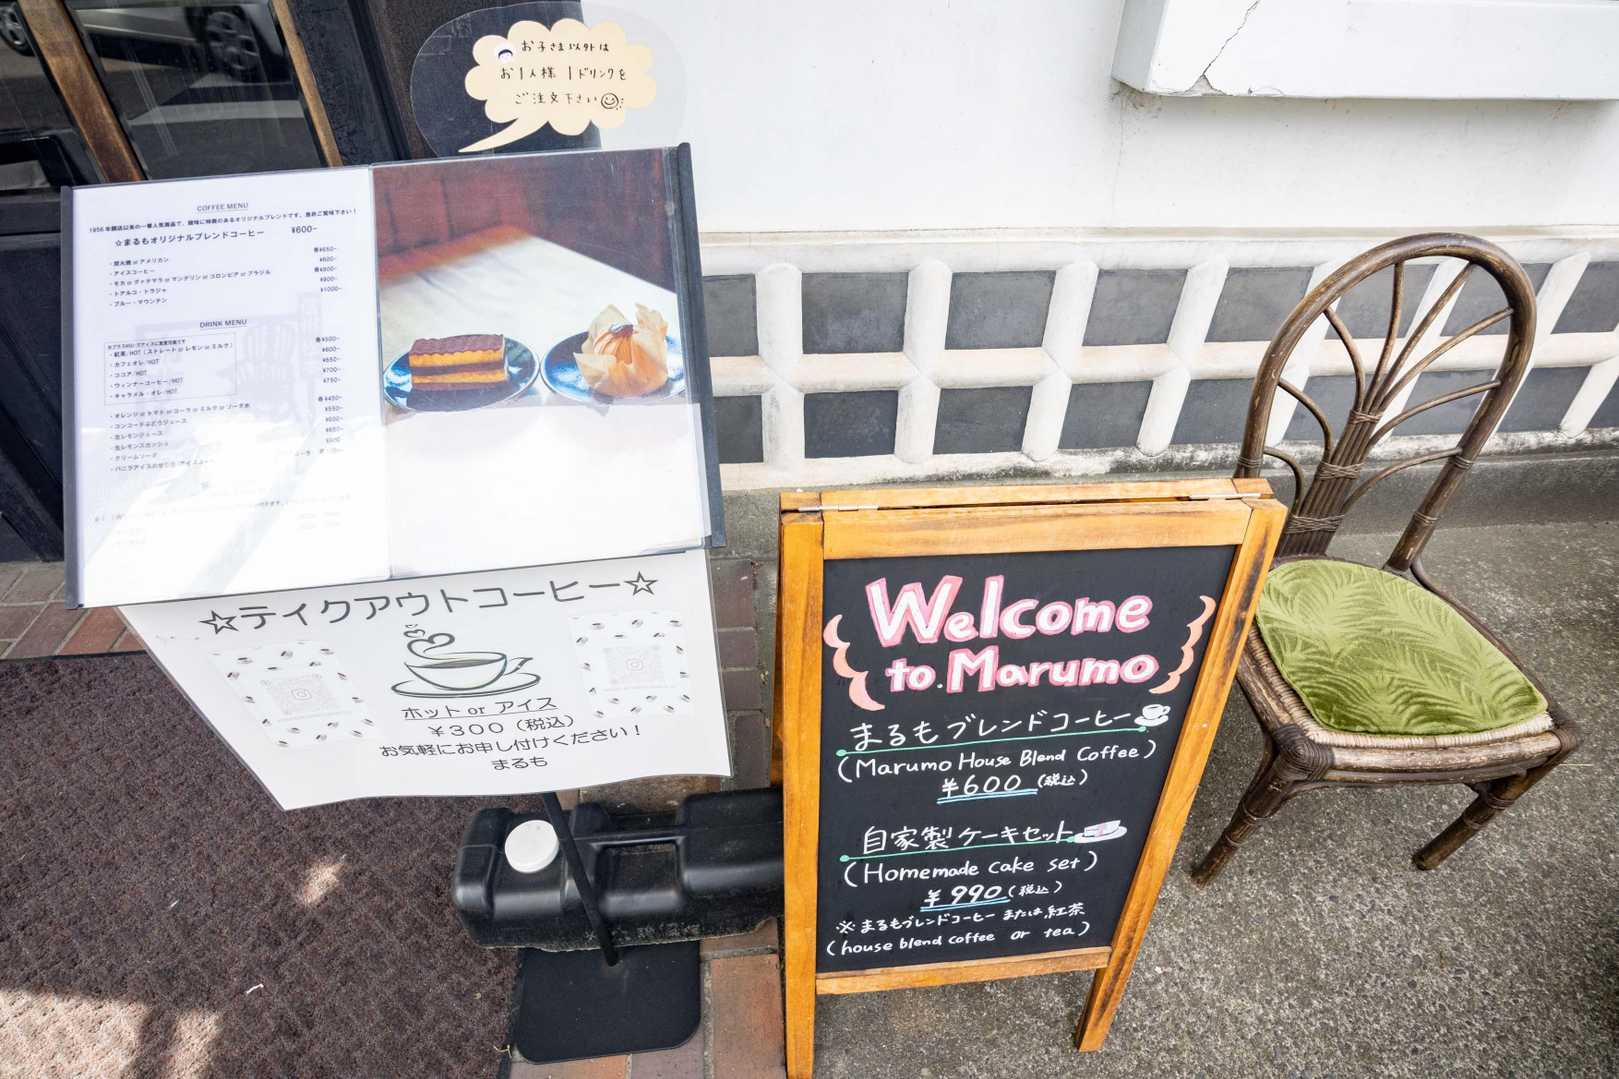 お子さま以外は
お1人様 1ドリンクを
ご注文下さい
COFFEE MENU
1956年開店以来の一番人気商品で、酸味に特徴のあるオリジナルブレンドです。是非ご賞味下さい!
☆まるもオリジナルブレンドコーヒー ¥600-
・炭火焼 or アメリカン 各¥650-
・アイスコーヒー ¥600-
・モカ or グァテマラ or マンデリン or コロンビア or ブラジル 各¥800-
・トアルコ・トラジャ ¥900-
・ブルー・マウンテン ¥1000-
DRINK MENU
・紅茶/HOT(ストレート or レモン or ミルク) 各¥500-
・カフェオレ/HOT ¥600-
・ココア/HOT ¥650-
・ウィンナーコーヒー/HOT ¥700-
・キャラメル・オレ/HOT ¥750-
・オレンジ or トマト or コーラ or ミルク or ソーダ水 各¥450-
・コンコードぶどうジュース ¥550-
・生レモンジュース ¥600-
・生レモンスカッシュ ¥650-
・クリームソーダ
☆テイクアウトコーヒー☆
ホット or アイス
¥300(税込)
お気軽にお申し付けください!
まるも
Welcome
to Marumo
まるもブレンドコーヒー
(Marumo House Blend Coffee)
¥600(税込)
自家製ケーキセット
(Homemade cake set)
¥990(税込)
※まるもブレンドコーヒー または 紅茶
(house blend coffee or tea)